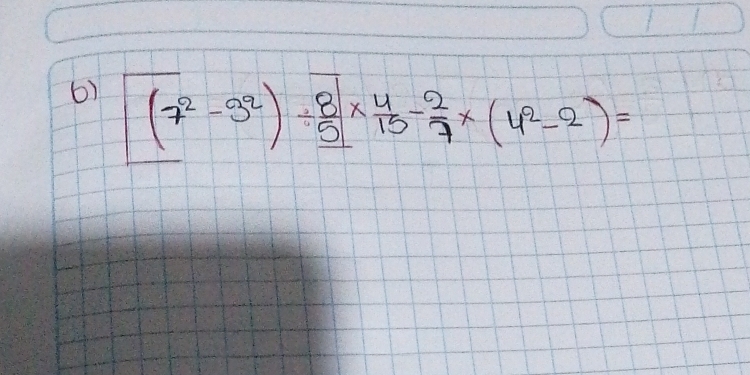 b) [(7² - 3²) ÷ 8/5] × 4/15 - 2/7 × (4² - 2) =